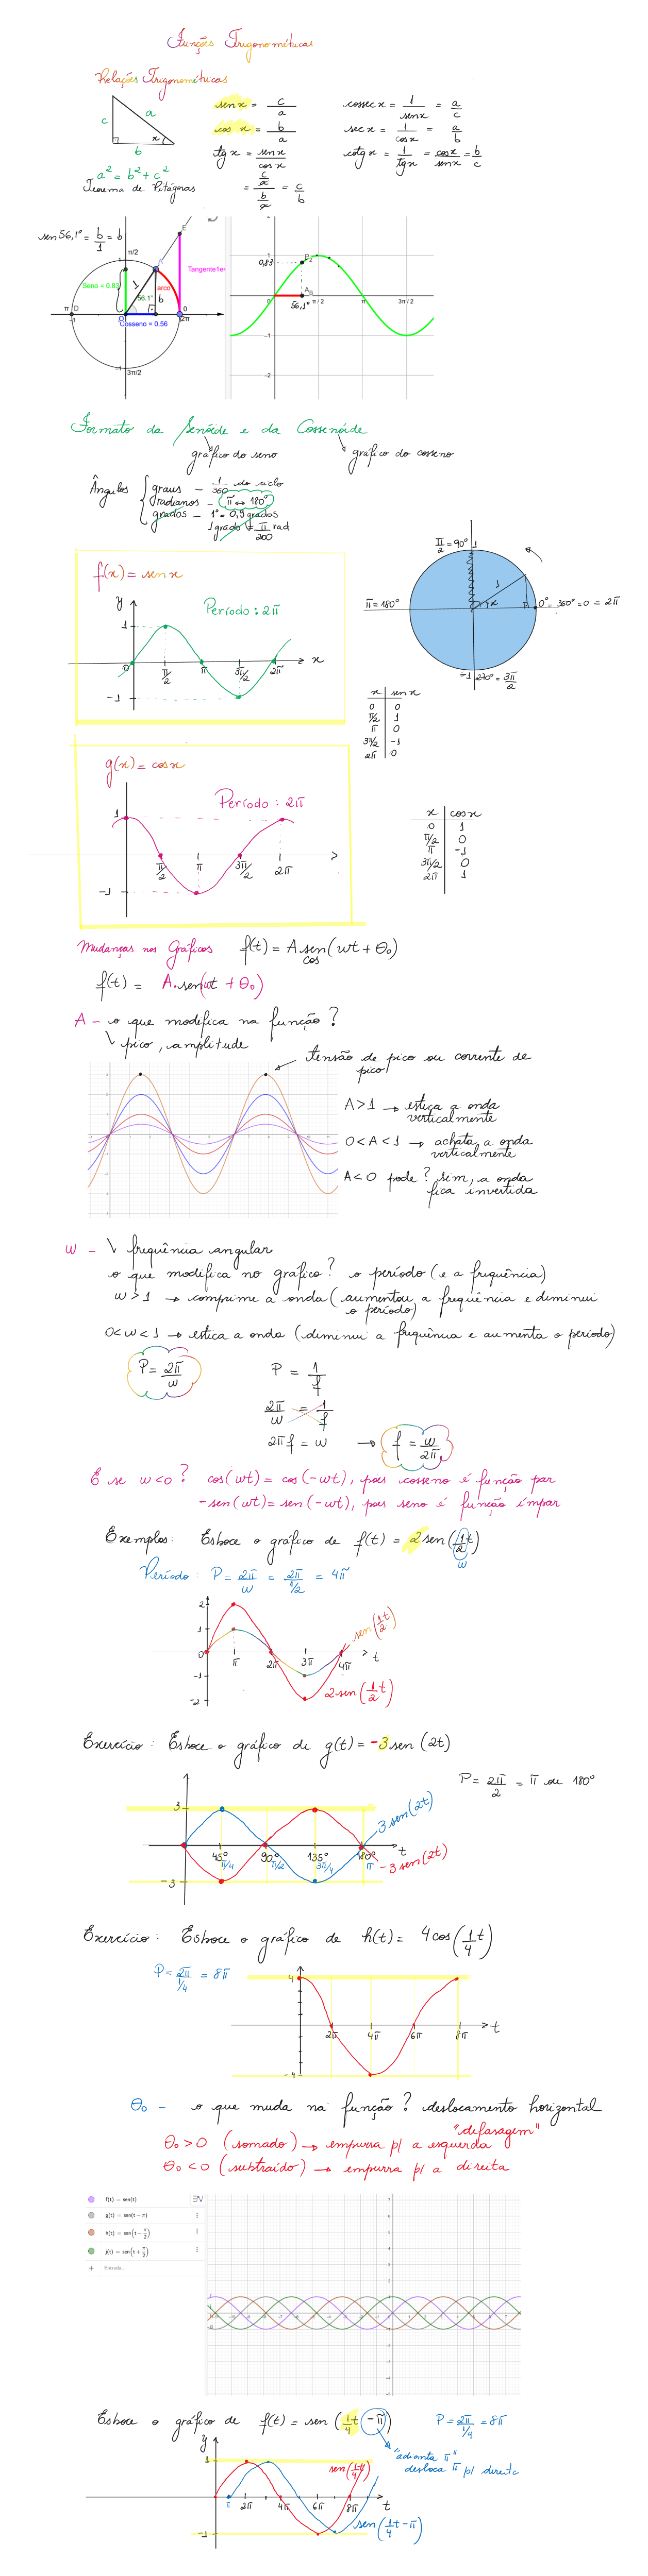 Funções Trigonométricas
Relações Trigonométricas
c
a
x
b
a² = b² + c²
Teorema de Pitágoras
sen x = c/a
cos x = b/a
tg x = sen x / cos x
= (c/a)/(b/a) = c/b
cossec x = 1/sen x = a/c
sec x = 1/cos x = a/b
cotg x = 1/tg x = cos x/sen x = b/c
sen 56,1° = b/1 = b
π/2
1
E
A
Seno = 0.83
1
arco
Tangente
56.1°
b
π
D
-1
O
Cosseno = 0.56
0
2π
-1
3π/2
0,83
P
1
0
A
56,1°
π/2
π
3π/2
-1
-2
Formato da Senóide e da Cossenóide
gráfico do seno
gráfico do cosseno
Ângulos
graus – 1/360 do ciclo
radianos – π ↔ 180°
grados – 1° = 0,9 grados
1 grado = π/200 rad
f(x) = sen x
y
Período: 2π
1
0
π/2
π
3π/2
2π
x
-1
π/2 = 90°
1
1
x
π = 180°
0° = 360° = 0 = 2π
-1
270° = 3π/2
x | sen x
0 | 0
π/2 | 1
π | 0
3π/2 | -1
2π | 0
g(x) = cos x
Período: 2π
1
π/2
π
3π/2
2π
-1
x | cos x
0 | 1
π/2 | 0
π | -1
3π/2 | 0
2π | 1
Mudanças nos Gráficos f(t) = A sen(wt + θ₀)
cos
f(t) = A.sen(wt + θ₀)
A – o que modifica na função?
pico, amplitude
tensão de pico ou corrente de pico
A > 1 → estica a onda verticalmente
0 < A < 1 → achata a onda verticalmente
A < 0 pode? sim, a onda fica invertida
w – frequência angular
o que modifica no gráfico? o período (e a frequência)
w > 1 → comprime a onda (aumentou a frequência e diminui o período)
0 < w < 1 → estica a onda (diminui a frequência e aumenta o período)
P = 2π/w
P = 1/f
2π/w = 1/f
2πf = w → f = w/2π
E se w < 0? cos(wt) = cos(-wt), pois cosseno é função par
-sen(wt) = sen(-wt), pois seno é função ímpar
Exemplos: Esboce o gráfico de f(t) = 2 sen(1/2 t)
w
Período: P = 2π/w = 2π/(1/2) = 4π
2
1
0
-1
-2
π
2π
3π
4π
t
sen(1/2 t)
2 sen(1/2 t)
Exercício: Esboce o gráfico de g(t) = -3 sen(2t)
P = 2π/2 = π ou 180°
3
-3
45°
π/4
90°
π/2
135°
3π/4
180°
π
t
3 sen(2t)
-3 sen(2t)
Exercício: Esboce o gráfico de h(t) = 4 cos(1/4 t)
P = 2π/(1/4) = 8π
4
-4
2π
4π
6π
8π
t
θ₀ – o que muda na função? deslocamento horizontal
"defasagem"
θ₀ > 0 (somado) → empurra p/ a esquerda
θ₀ < 0 (subtraído) → empurra p/ a direita
f(t) = sen(t)
g(t) = sen(t − π)
h(t) = sen(t − π/2)
j(t) = sen(t + π/2)
Entrada...
Esboce o gráfico de f(t) = sen(1/4 t - π)
P = 2π/(1/4) = 8π
"adianta π"
desloca π p/ direita
y
1
-1
π
2π
4π
6π
8π
t
sen(1/4 t)
sen(1/4 t - π)